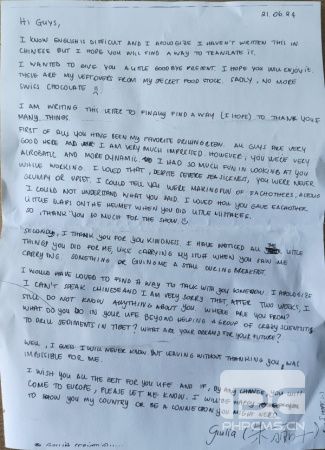 21.06.24
Hi GUYS,
I KNOW ENGLISH IS DIFFICULT AND I APOLOGIZE I HAVEN'T WRITTEN THIS IN
CHINESE BUT I HOPE YOU WILL FIND A WAY TO TRANSLATE IT.
I WANTED TO GIVE YOU A LITTLE GOODBYE PRESENT. I HOPE YOU WILL ENJOY IT.
THESE ARE MY LEFTOVERS FROM MY SECRET FOOD STOCK. SADLY, NO MORE
SWISS CHOCOLATE
I AM WRITING THIS LETTER TO FINALLY FIND A WAY (I HOPE) TO THANK YOU
MANY THINGS.
FIRST OF ALL YOU HAVE BEEN MY FAVORITE DRILLING CREW. ALL GUYS ARE VERY
GOOD HERE AND I AM VERY MUCH IMPRESSED. HOWEVER, YOU WERE VERY
ACROBATIC AND MORE DYNAMIC. I HAD SO MUCH FUN IN LOOKING AT YOU
WHILE WORKING. I LOVED THAT, DESPITE SEVERE SICKNESS, YOU WERE NEVER
GRUMPY OR UPSET. I COULD TELL YOU WERE MAKING FUN OF EACHOTHERS, ALTOUG
I COULD NOT UNDERSTAND WHAT YOU SAID. I LOVED HOW YOU GAVE EACHOTHER
LITTLE SLAPS ON THE HELMET WHEN YOU DID LITTLE MISTAKES.
SO, THANK YOU SO MUCH FOR THE SHOW.
SECONDLY, I THANK YOU FOR YOU KINDNESS. I HAVE NOTICED ALL LITTLE
THINGS YOU DID FOR ME, LIKE CARRYING MY STUFF WHEN YOU SAW ME
CARRYING SOMETHING OR GIVING ME A STILL DURING BREAKFAST.
I WOULD HAVE LOVED TO FIND A WAY TO TALK WITH YOU SOMEHOW. I APOLOGIZE
I CAN'T SPEAK CHINESE AND I AM VERY SORRY THAT, AFTER TWO WEEKS, I
STILL DO NOT KNOW ANYTHING ABOUT YOU. WHERE ARE YOU FROM?
WHAT DO YOU DO IN YOUR LIFE BEYOND HELPING A GROUP OF CRAZY SCIENTISTS
TO DRILL SEDIMENTS IN TIBET? WHAT ARE YOUR DREAMS FOR YOUR FUTURE?
WELL, I GUESS I WILL NEVER KNOW BUT LEAVING WITHOUT THANKING YOU WAS
IMPOSSIBLE FOR ME.
I WISH YOU ALL THE BEST FOR YOU LIFE AND IF, BY ANY CHANCE, YOU WILL
COME TO EUROPE, PLEASE LET ME KNOW. I WILL BE HAPPY
TO SHOW YOU MY COUNTRY OR BE A CONNECTION YOU MIGHT NEED.
Giulia
PHPCMS.CN